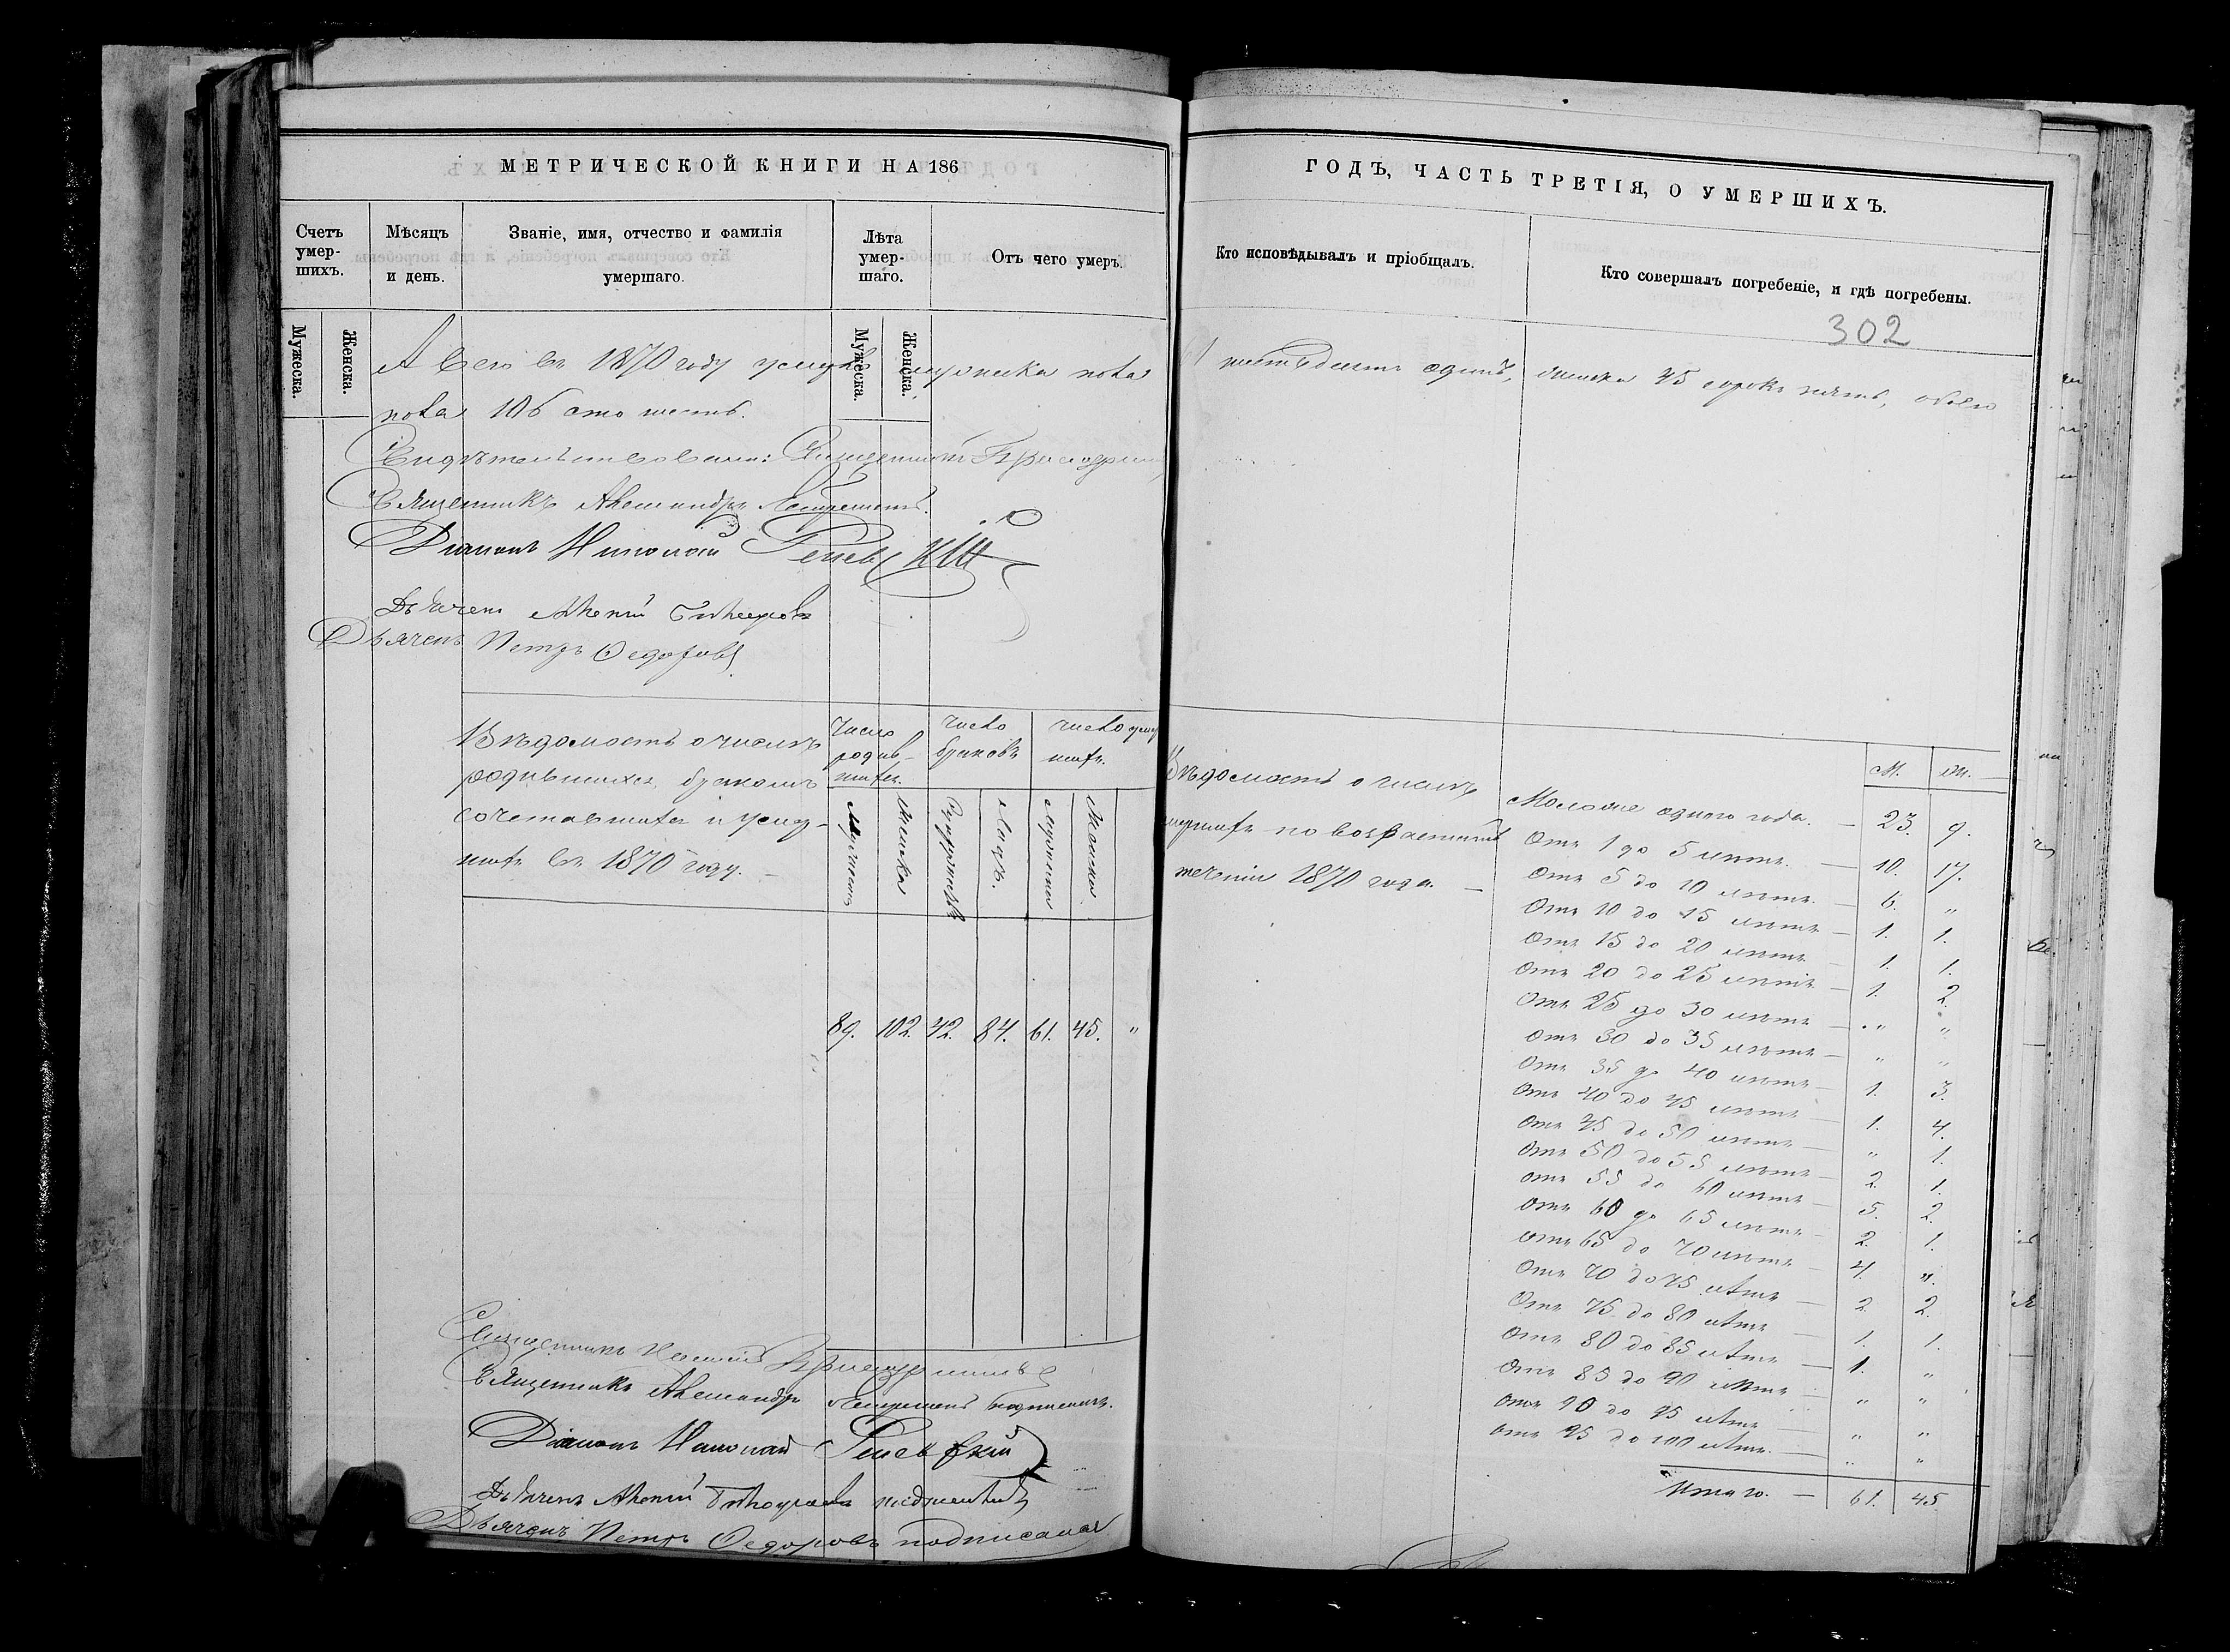 МЕТРИЧЕСКОЙ КНИГИ НА 186
Счетъ умер-шихъ.
Мужеска.
Женска.
Мѣсяцъ и день.
Званіе, имя, отчество и фамилія умершаго.
Лѣта умер-шаго.
Мужеска.
Женска.
Отъ чего умеръ.
А всего въ 1870 году умерло мужеска пола
пола 106 сто шесть.
Свидѣтельствовали: Священникъ
Священникъ Александръ
Діаконъ Николай
Дьячекъ
Дьячекъ Петръ Ѳедоровъ
Вѣдомость о числѣ
родившихся, бракомъ
сочетавшихся и умер-
шихъ въ 1870 году. —
Число родив-шихся.
число браковъ
число умер шихъ.
Мужеска
Женска
Супружествъ
Лицъ.
Мужеска
Женска
89. 102. 42. 84. 61. 45. "
Священникъ
Священникъ Александръ
Діаконъ Николай
Дьячекъ
Дьячекъ Петръ Ѳедоровъ подписался
ГОДЪ, ЧАСТЬ ТРЕТІЯ, О УМЕРШИХЪ.
Кто исповѣдывалъ и пріобщалъ.
Кто совершалъ погребеніе, и гдѣ погребены.
302
61 шестьдесятъ одинъ, женска 45 сорокъ пять, обоего
Вѣдомость о числѣ
умершихъ по возрастамъ
теченіи 1870 года. —
м. ж.
Моложе одного года. — 23. 9.
Отъ 1 до 5 лѣтъ. — 10. 17.
Отъ 5 до 10 лѣтъ. — 6. "
Отъ 10 до 15 лѣтъ — 1. 1.
Отъ 15 до 20 лѣтъ — 1. 1.
Отъ 20 до 25 лѣтъ — 1. 2.
Отъ 25 до 30 лѣтъ — " "
Отъ 30 до 35 лѣтъ — " "
Отъ 35 до 40 лѣтъ — 1. 3.
Отъ 40 до 45 лѣтъ — 1. 4.
Отъ 45 до 50 лѣтъ — " 1.
Отъ 50 до 55 лѣтъ — 2. 1.
отъ 55 до 60 лѣтъ — 5. 2.
отъ 60 до 65 лѣтъ — 2. 1.
отъ 65 до 70 лѣтъ — 4. "
Отъ 70 до 75 лѣтъ — 2. 2.
Отъ 75 до 80 лѣтъ — 1. 1.
Отъ 80 до 85 лѣтъ — 1. "
Отъ 85 до 90 лѣтъ — " "
Отъ 90 до 95 лѣтъ — " "
отъ 95 до 100 лѣтъ. — " "
Итого. — 61. 45